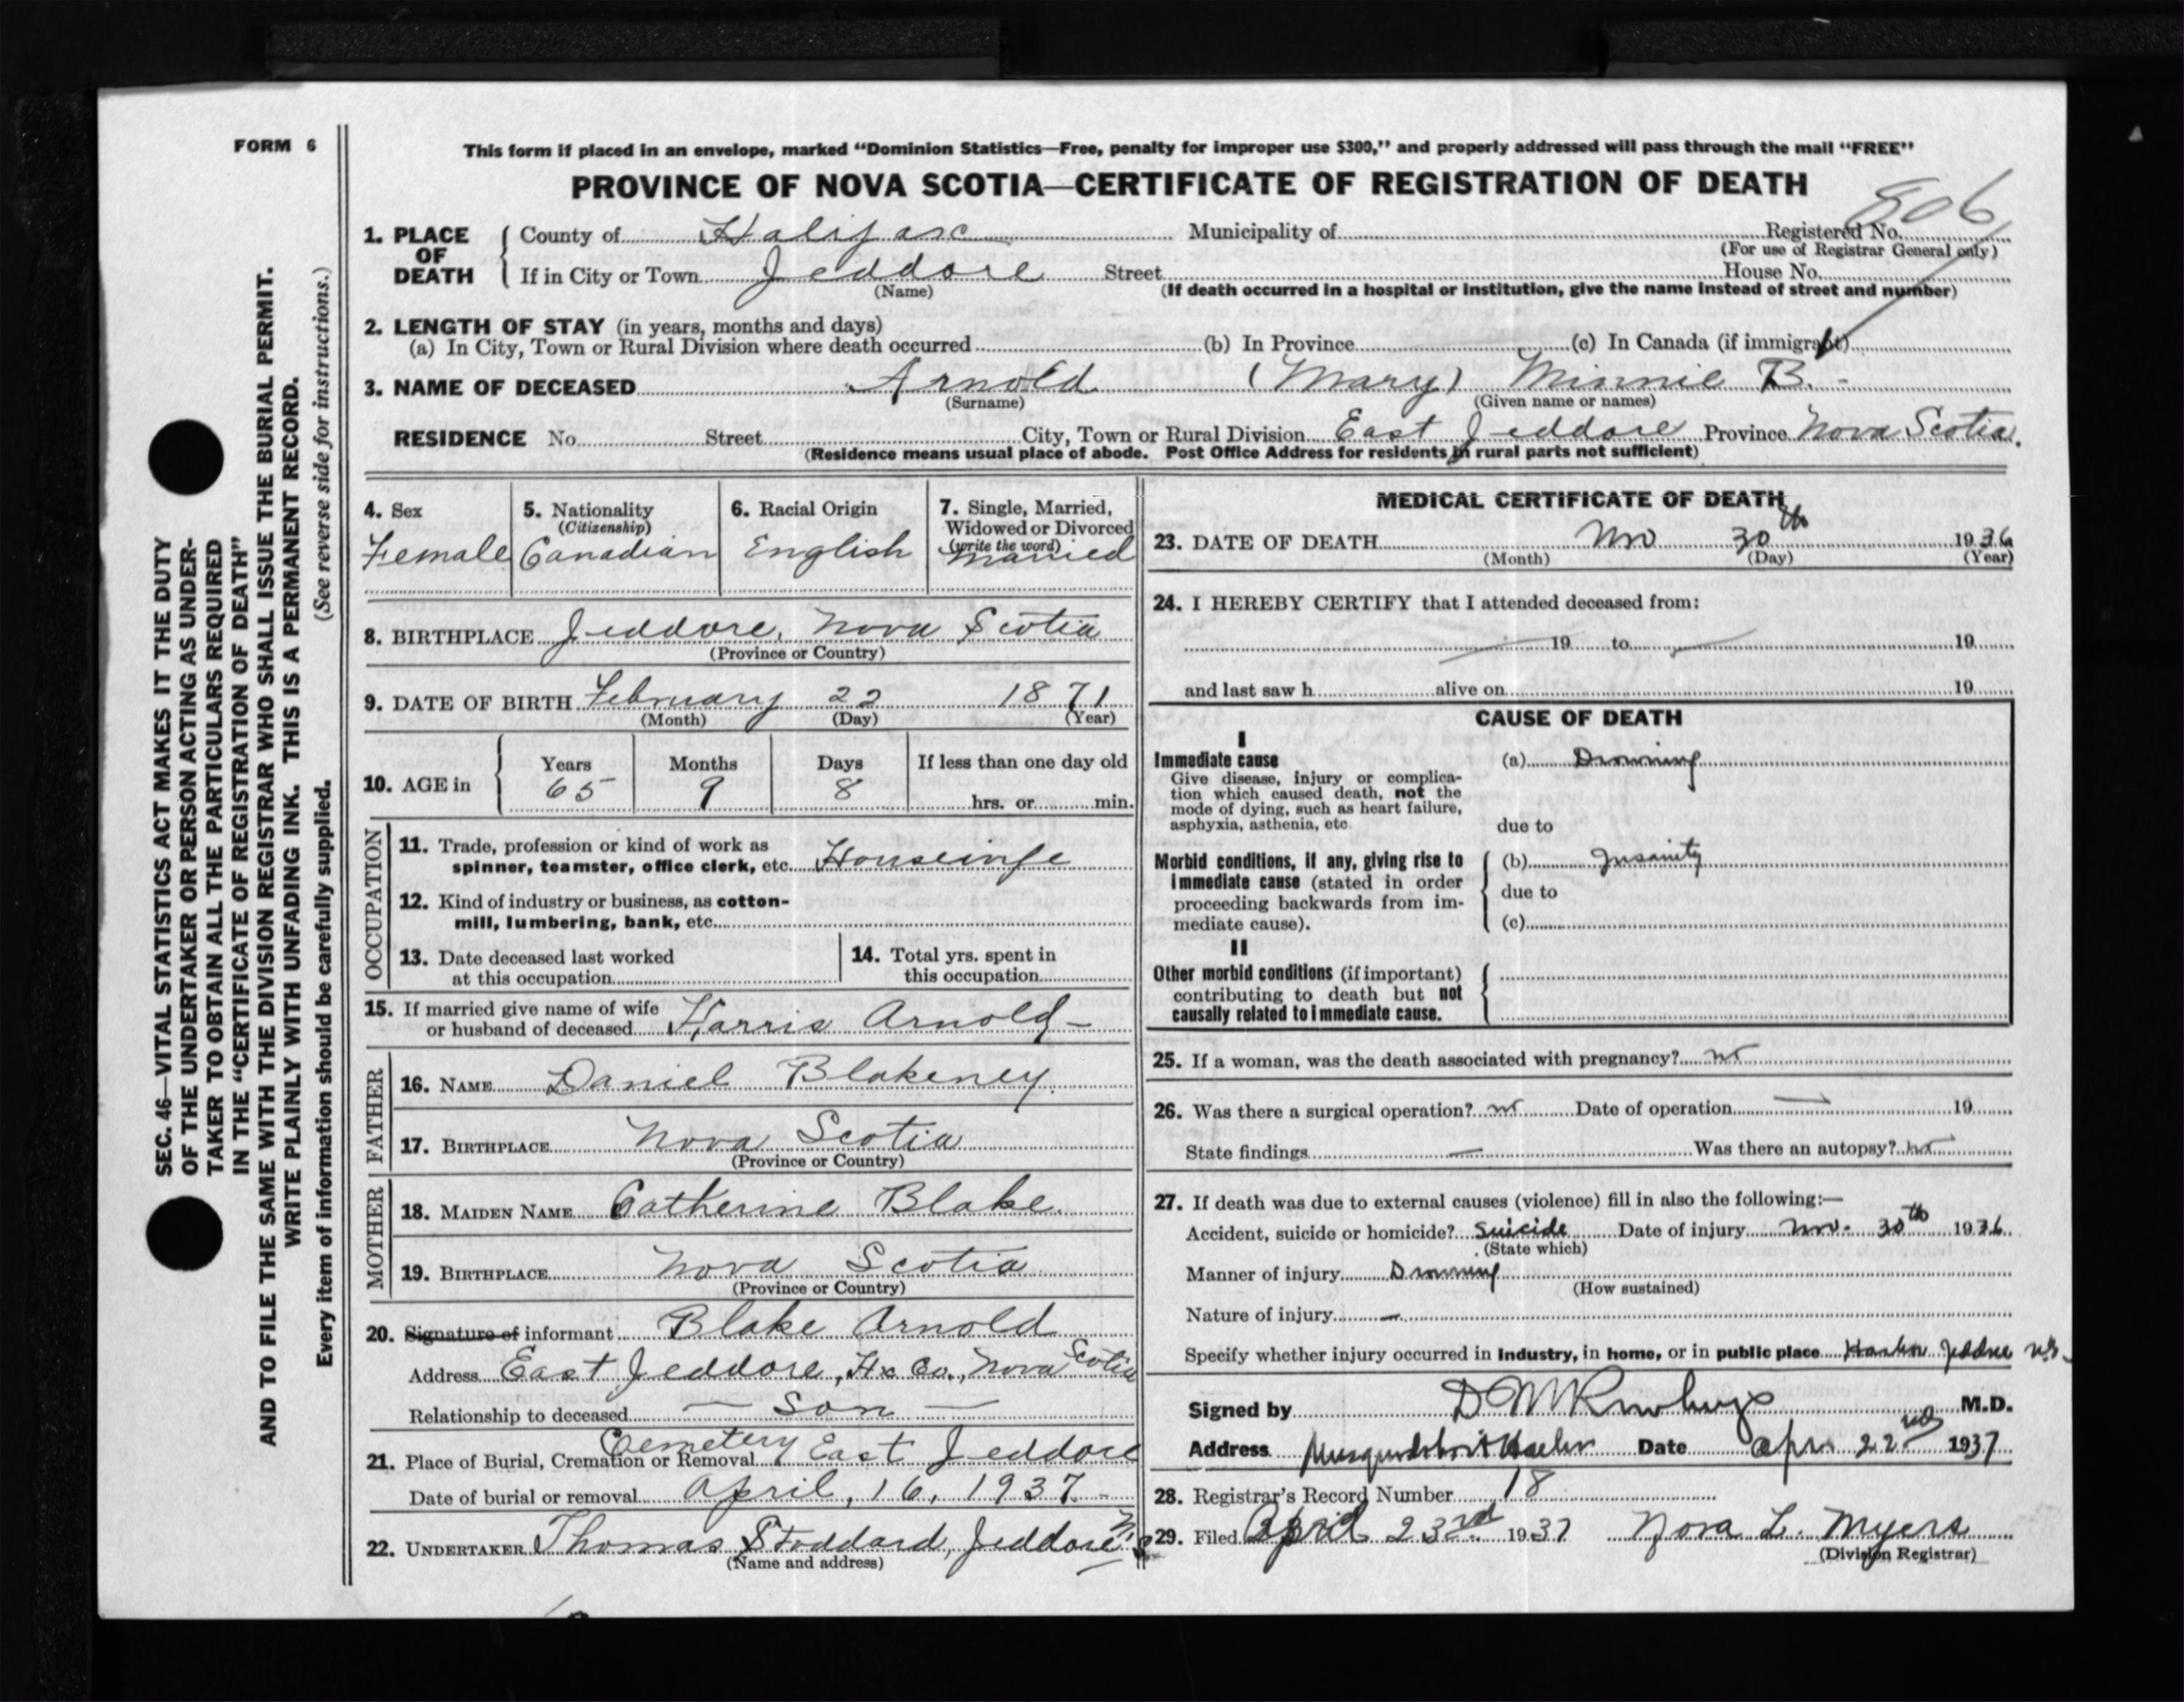 FORM 6
SEC. 46—VITAL STATISTICS ACT MAKES IT THE DUTY
OF THE UNDERTAKER OR PERSON ACTING AS UNDER-
TAKER TO OBTAIN ALL THE PARTICULARS REQUIRED
IN THE "CERTIFICATE OF REGISTRATION OF DEATH"
AND TO FILE THE SAME WITH THE DIVISION REGISTRAR WHO SHALL ISSUE THE BURIAL PERMIT.
WRITE PLAINLY WITH UNFADING INK. THIS IS A PERMANENT RECORD.
Every item of information should be carefully supplied. (See reverse side for instructions.)
This form if placed in an envelope, marked "Dominion Statistics—Free, penalty for improper use $300," and properly addressed will pass through the mail "FREE"
PROVINCE OF NOVA SCOTIA—CERTIFICATE OF REGISTRATION OF DEATH
806
1. PLACE OF DEATH County of Halifax Municipality of Registered No.
(For use of Registrar General only)
If in City or Town Jeddore Street House No.
(Name) (If death occurred in a hospital or institution, give the name instead of street and number)
2. LENGTH OF STAY (in years, months and days)
(a) In City, Town or Rural Division where death occurred (b) In Province (c) In Canada (if immigrant)
3. NAME OF DECEASED Arnold (Mary) Minnie B.
(Surname) (Given name or names)
RESIDENCE No. Street City, Town or Rural Division East Jeddore Province Nova Scotia.
(Residence means usual place of abode. Post Office Address for residents in rural parts not sufficient)
4. Sex 5. Nationality 6. Racial Origin 7. Single, Married,
(Citizenship) Widowed or Divorced
(write the word)
Female Canadian English Married
8. BIRTHPLACE Jeddore, Nova Scotia
(Province or Country)
9. DATE OF BIRTH February 22 1871
(Month) (Day) (Year)
10. AGE in Years Months Days If less than one day old
65 9 8 hrs. or min.
OCCUPATION
11. Trade, profession or kind of work as
spinner, teamster, office clerk, etc. Housewife
12. Kind of industry or business, as cotton-
mill, lumbering, bank, etc.
13. Date deceased last worked
at this occupation
14. Total yrs. spent in
this occupation
15. If married give name of wife
or husband of deceased Harris Arnold
FATHER
16. NAME Daniel Blakeney.
17. BIRTHPLACE Nova Scotia
(Province or Country)
MOTHER
18. MAIDEN NAME Catherine Blake.
19. BIRTHPLACE Nova Scotia
(Province or Country)
20. Signature of informant Blake Arnold
Address East Jeddore, Hx Co., Nova Scotia
Relationship to deceased — Son —
21. Place of Burial, Cremation or Removal Cemetery East Jeddore
Date of burial or removal April, 16, 1937.
22. UNDERTAKER Thomas Stoddard, Jeddore N.S
(Name and address)
MEDICAL CERTIFICATE OF DEATH
23. DATE OF DEATH Nov 30th 1936
(Month) (Day) (Year)
24. I HEREBY CERTIFY that I attended deceased from:
— 19 to — 19
and last saw h alive on 19
CAUSE OF DEATH
I
Immediate cause (a) Drowning
Give disease, injury or complica-
tion which caused death, not the
mode of dying, such as heart failure,
asphyxia, asthenia, etc. due to
Morbid conditions, if any, giving rise to (b) Insanity
immediate cause (stated in order due to
proceeding backwards from im-
mediate cause). (c)
II
Other morbid conditions (if important)
contributing to death but not
causally related to immediate cause.
25. If a woman, was the death associated with pregnancy? no
26. Was there a surgical operation? no Date of operation — 19
State findings — Was there an autopsy? no
27. If death was due to external causes (violence) fill in also the following:—
Accident, suicide or homicide? Suicide Date of injury Nov. 30th 1936
(State which)
Manner of injury Drowning
(How sustained)
Nature of injury —
Specify whether injury occurred in industry, in home, or in public place Harbor Jeddore N.S.
Signed by M.D.
Address Musquodoboit Harbor Date Apr. 22nd 1937
28. Registrar's Record Number 18
29. Filed April 23rd 1937 Nora L. Myers
(Division Registrar)